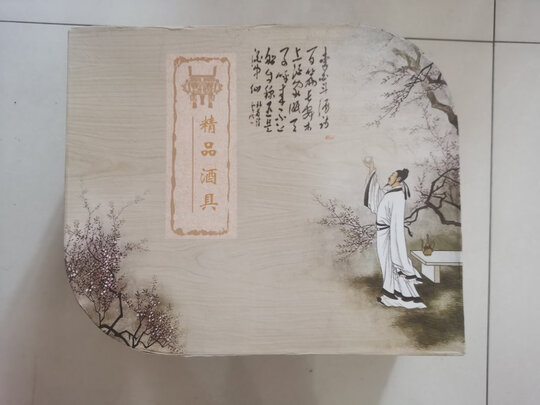 李白斗酒诗
百篇长安市
上酒家眠天
子呼来不上
船自称臣是
酒中仙
精品酒具